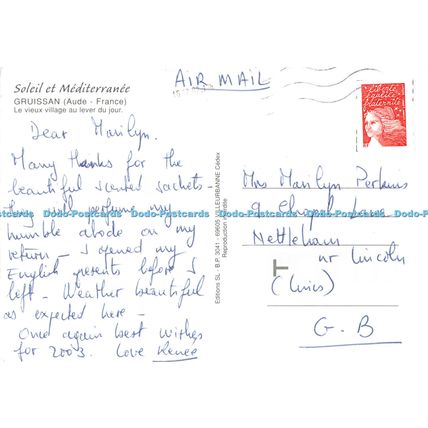 Soleil et Méditerranée
GRUISSAN (Aude - France)
Le vieux village au lever du jour.
AIR MAIL
Dear Marilyn.
Many thanks for the
beautiful scented sachets -
they will perfume my
humble abode on my
return - I opened my
English presents before I
left - Weather beautiful
as expected here -
Once again best wishes
for 2003. Love Renée
Editions SL - B.P. 3041 - 69605 VILLEURBANNE Cédex
Reproduction interdite
liberté
égalité
fraternité
RF
Mrs Marilyn Perkins
9 Chapel Lane
Nettleham
nr Lincoln
(Lincs)
G.B
Dodo-Postcards Dodo-Postcards Dodo-Postcards Dodo-Postcards